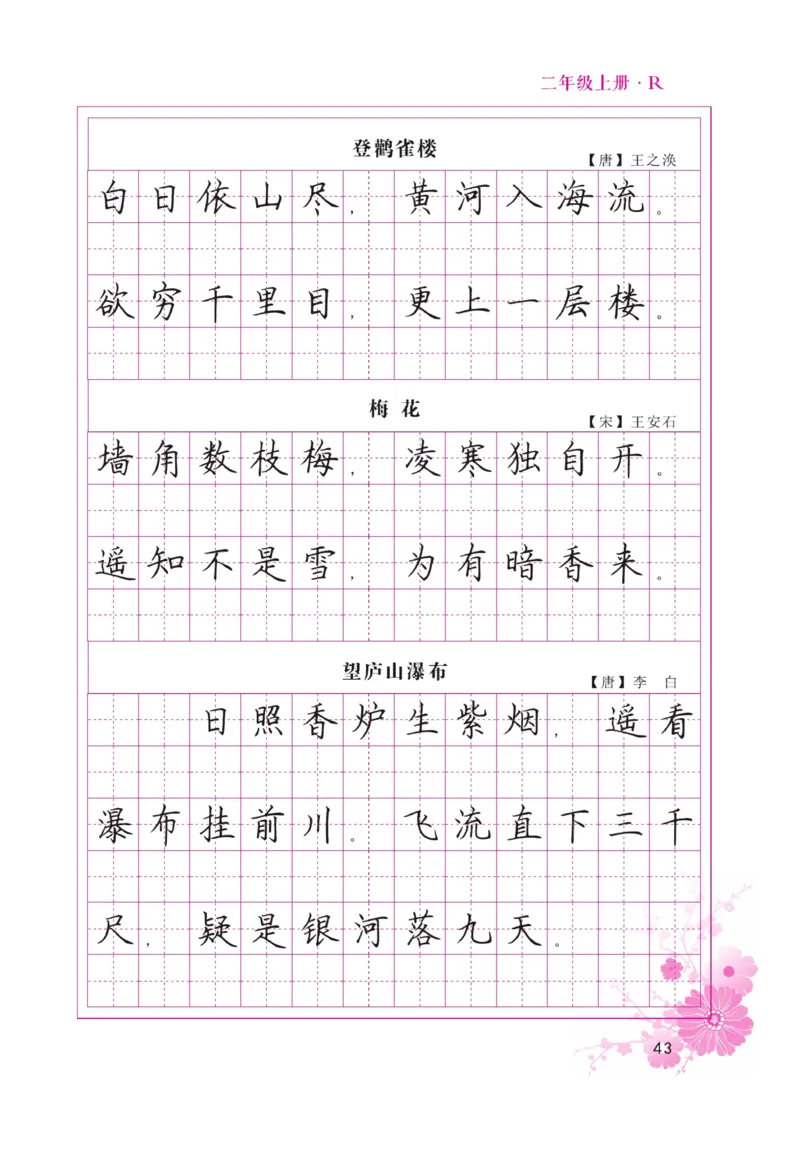 二年级上册·R
登鹳雀楼
【唐】王之涣
白日依山尽，黄河入海流。
欲穷千里目，更上一层楼。
梅 花
【宋】王安石
墙角数枝梅，凌寒独自开。
遥知不是雪，为有暗香来。
望庐山瀑布
【唐】李 白
日照香炉生紫烟，遥看
瀑布挂前川。飞流直下三千
尺，疑是银河落九天。
43